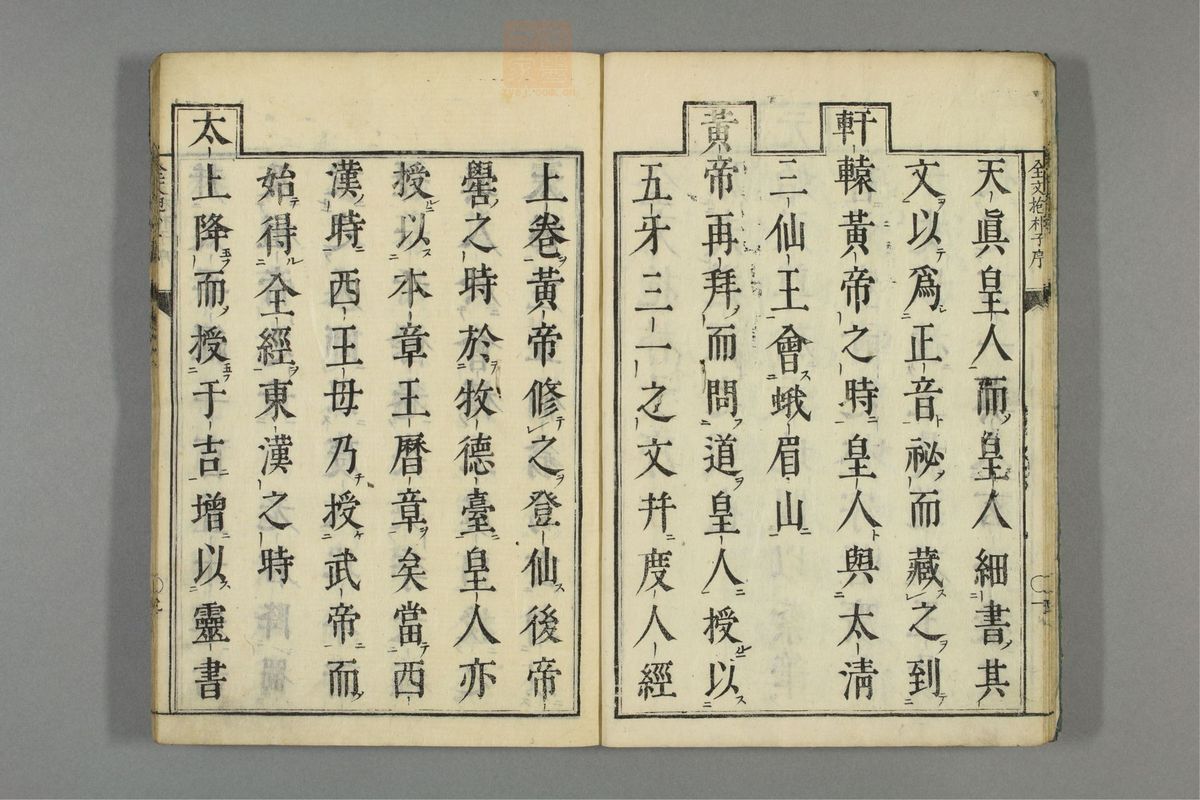 全文抱朴子序
天眞皇人而皇人細書其
文以爲正音祕而藏之到
軒轅黃帝之時皇人與太清
三仙王會蛾眉山
黃帝再拜而問道皇人授以
五牙三一之文幷度人經
上卷黃帝修之登仙後帝
嚳之時於牧德臺皇人亦
授以本章王曆章矣當西
漢時西王母乃授武帝而
始得全經東漢之時
太上降而授于吉增以靈書